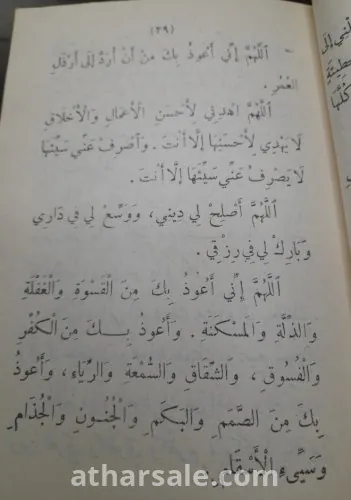 (٣٩)
- اَللّٰهُمَّ إِنِّي أَعُوذُ بِكَ مِنْ أَنْ أُرَدَّ إِلَى أَرْذَلِ
العُمُرِ .
اَللّٰهُمَّ اهْدِنِي لِأَحْسَنِ الْأَعْمَالِ وَالْأَخْلَاقِ
لَا يَهْدِي لِأَحْسَنِهَا إِلَّا أَنْتَ . وَاصْرِفْ عَنِّي سَيِّئَهَا
لَا يَصْرِفُ عَنِّي سَيِّئَهَا إِلَّا أَنْتَ .
اَللّٰهُمَّ أَصْلِحْ لِي دِينِي، وَوَسِّعْ لِي فِي دَارِي
وَبَارِكْ لِي فِي رِزْقِي .
اَللّٰهُمَّ إِنِّي أَعُوذُ بِكَ مِنَ الْقَسْوَةِ وَالْغَفْلَةِ
وَالذِّلَّةِ وَالْمَسْكَنَةِ . وَأَعُوذُ بِكَ مِنَ الْكُفْرِ
وَالْفُسُوقِ ، وَالشِّقَاقِ وَالسُّمْعَةِ وَالرِّيَاءِ، وَأَعُوذُ
بِكَ مِنَ الصَّمَمِ وَالْبَكَمِ وَالْجُنُونِ وَالْجُذَامِ
وَسَيِّيءِ الْأَسْقَامِ .
atharsale.com